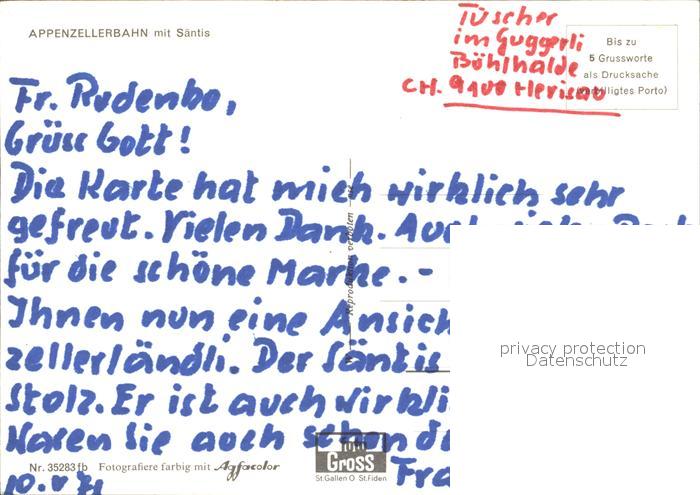 APPENZELLERBAHN mit Säntis
Tüscher
im Guggerli
Böhlhalde
CH. 9100 Herisau
Bis zu
5 Grussworte
als Drucksache
(verbilligtes Porto)
Grüss Gott!
Die Karte hat mich wirklich sehr
gefreut. Vielen Dank. Auch vielen Dank
für die schöne Marke.-
Ihnen nun eine Ansich
zellerländli. Der Säntis
Stolz. Er ist auch wirkli
Waren Sie auch schon d
Fra
10. V 71
Reproduktion verboten
Nr. 35283fb Fotografiere farbig mit Agfacolor
foto
GROSS
St.Gallen O St.Fiden
privacy protection
Datenschutz